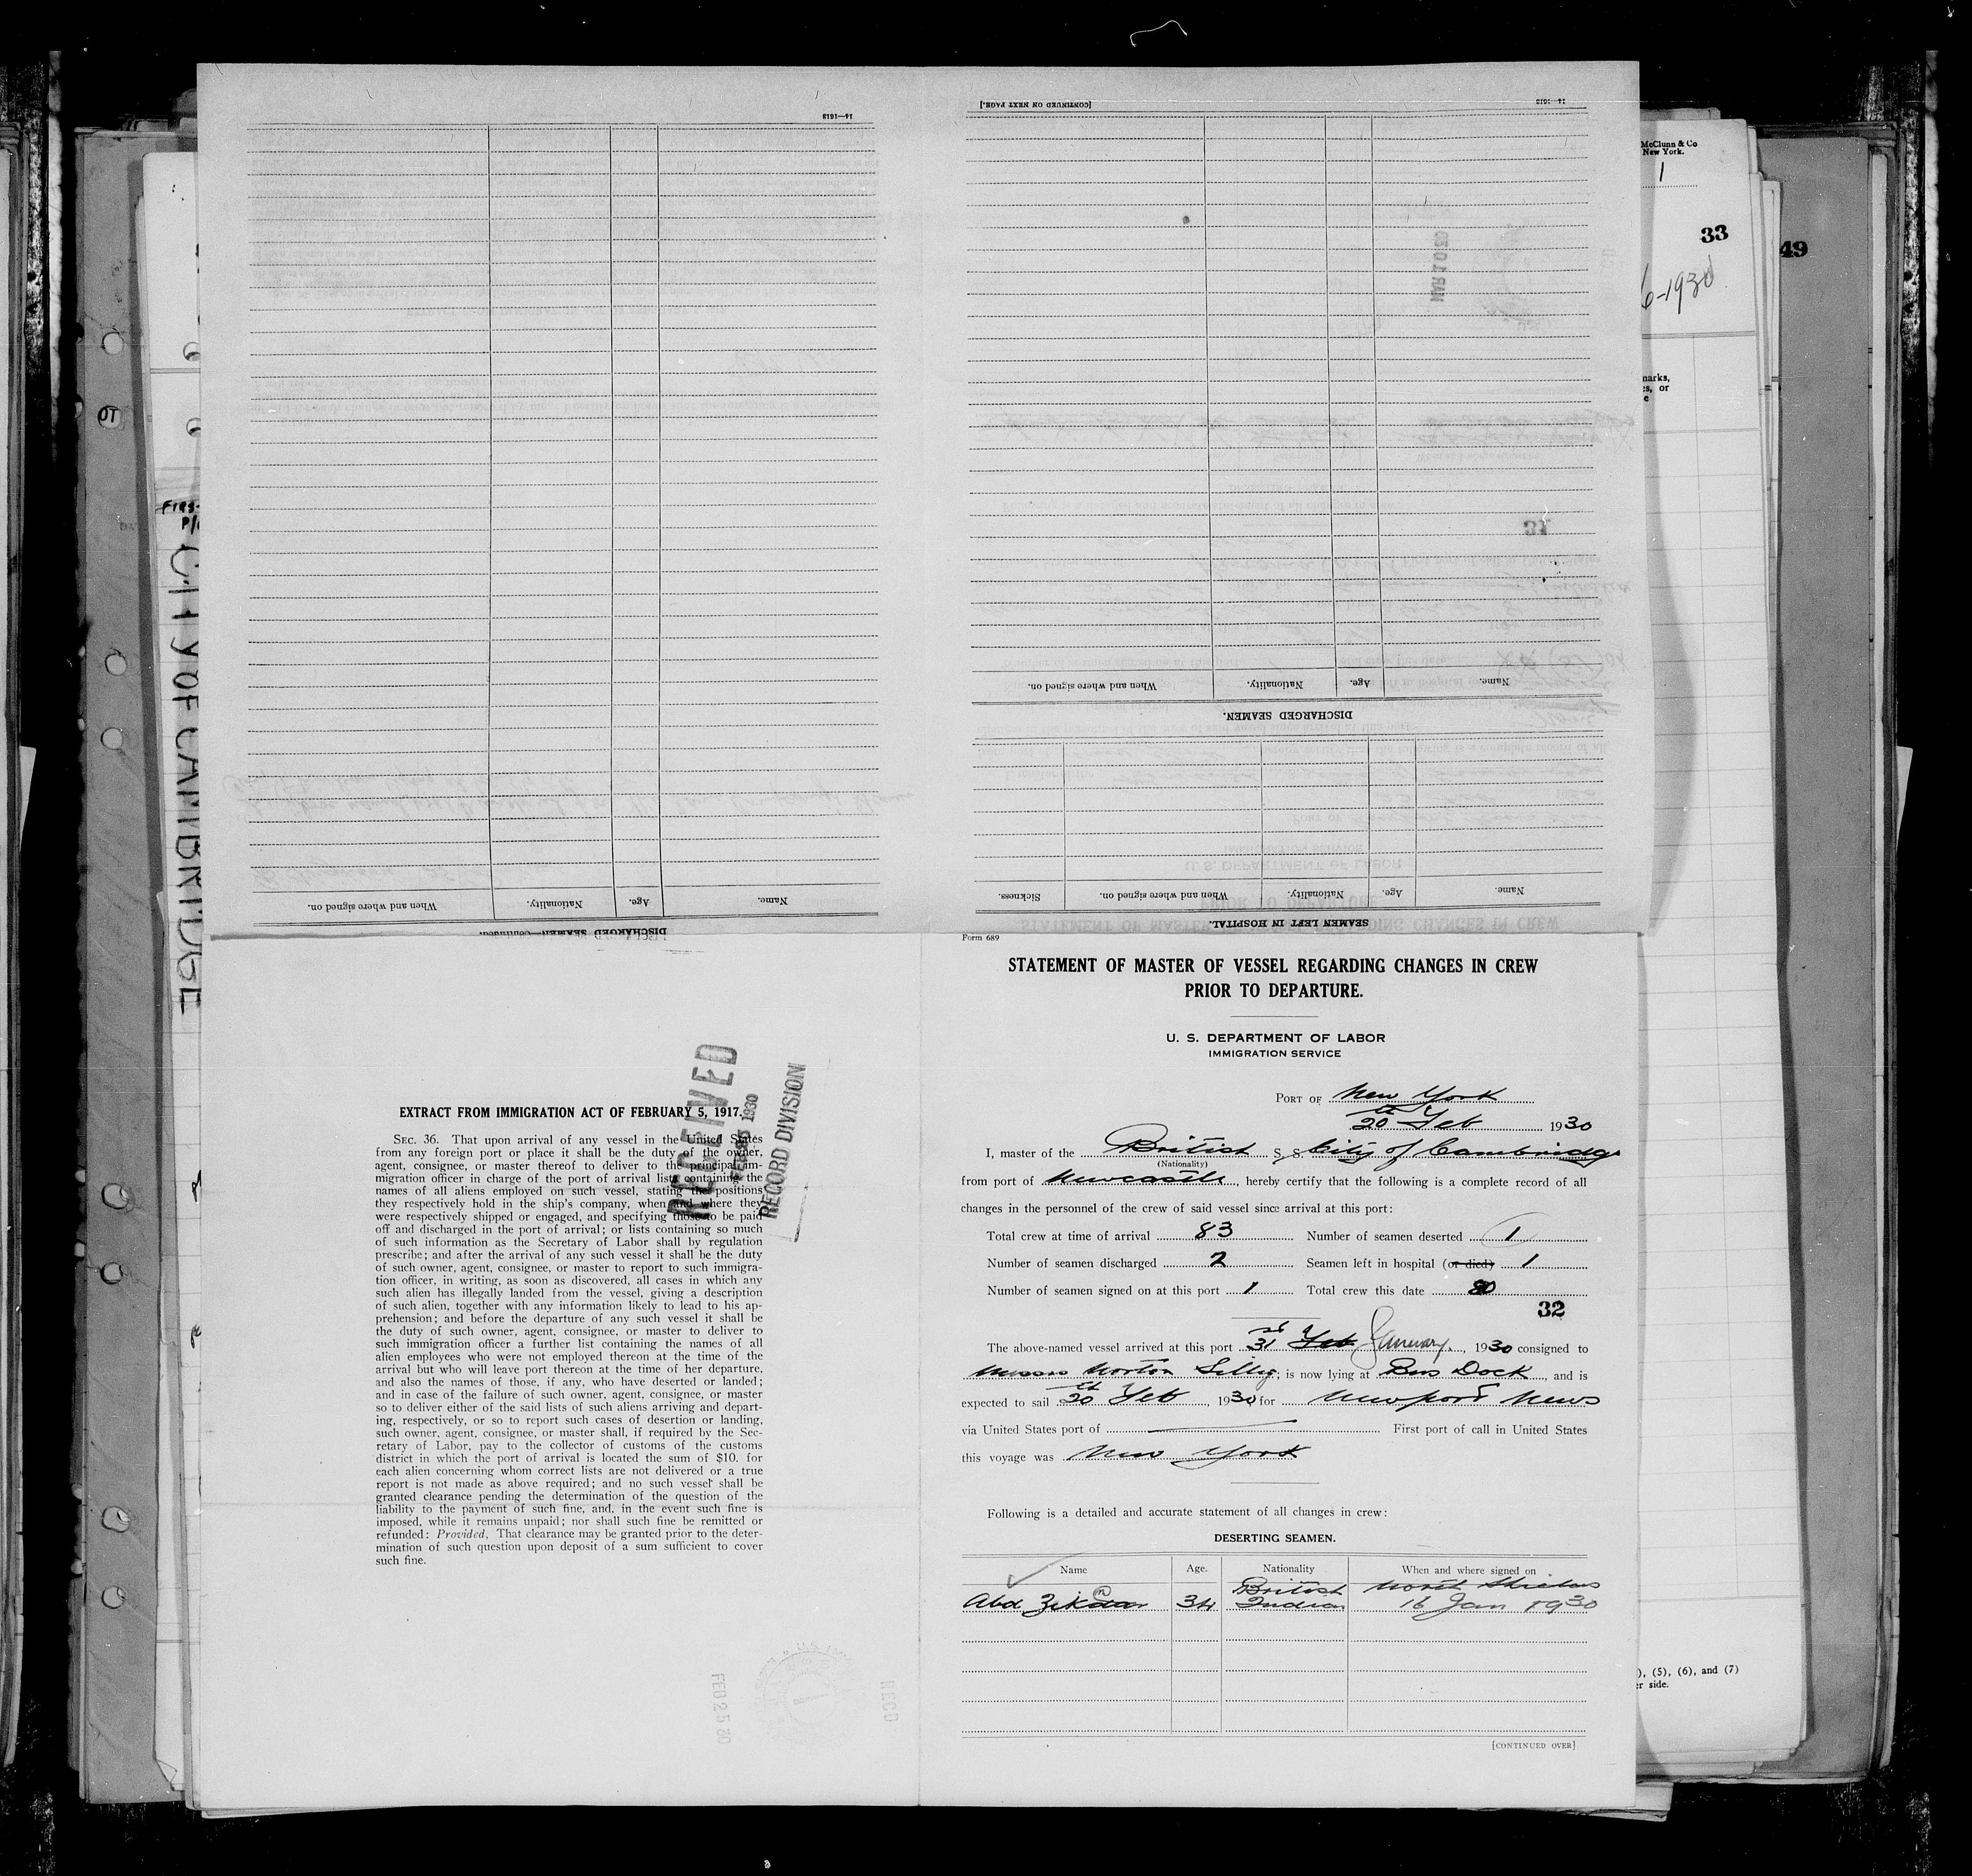 14—1613
[CONTINUED ON NEXT PAGE.]
14—1613
When and where signed on.
Nationality.
Age.
Name.
DISCHARGED SEAMEN.
Sickness.
When and where signed on.
Nationality.
Age.
Name.
SEAMEN LEFT IN HOSPITAL.
When and where signed on.
Nationality.
Age.
Name.
DISCHARGED SEAMEN—Continued.
MAR 10 30
31
McClunn & Co
New York.
1
33
6-1930
49
marks,
es, or
e
CITY OF CAMBRIDGE
), (5), (6), and (7)
er side.
EXTRACT FROM IMMIGRATION ACT OF FEBRUARY 5, 1917.
SEC. 36. That upon arrival of any vessel in the United States
from any foreign port or place it shall be the duty of the owner,
agent, consignee, or master thereof to deliver to the principal im-
migration officer in charge of the port of arrival lists containing the
names of all aliens employed on such vessel, stating the positions
they respectively hold in the ship's company, when and where they
were respectively shipped or engaged, and specifying those to be paid
off and discharged in the port of arrival; or lists containing so much
of such information as the Secretary of Labor shall by regulation
prescribe; and after the arrival of any such vessel it shall be the duty
of such owner, agent, consignee, or master to report to such immigra-
tion officer, in writing, as soon as discovered, all cases in which any
such alien has illegally landed from the vessel, giving a description
of such alien, together with any information likely to lead to his ap-
prehension; and before the departure of any such vessel it shall be
the duty of such owner, agent, consignee, or master to deliver to
such immigration officer a further list containing the names of all
alien employees who were not employed thereon at the time of the
arrival but who will leave port thereon at the time of her departure,
and also the names of those, if any, who have deserted or landed;
and in case of the failure of such owner, agent, consignee, or master
so to deliver either of the said lists of such aliens arriving and depart-
ing, respectively, or so to report such cases of desertion or landing,
such owner, agent, consignee, or master shall, if required by the Sec-
retary of Labor, pay to the collector of customs of the customs
district in which the port of arrival is located the sum of $10. for
each alien concerning whom correct lists are not delivered or a true
report is not made as above required; and no such vessel shall be
granted clearance pending the determination of the question of the
liability to the payment of such fine, and, in the event such fine is
imposed, while it remains unpaid; nor shall such fine be remitted or
refunded: Provided, That clearance may be granted prior to the deter-
mination of such question upon deposit of a sum sufficient to cover
such fine.
RECEIVED
1930
RECORD DIVISION
FEB 25 30
RECD
Form 689
STATEMENT OF MASTER OF VESSEL REGARDING CHANGES IN CREW
PRIOR TO DEPARTURE.
U. S. DEPARTMENT OF LABOR
IMMIGRATION SERVICE
PORT OF New York
20th Feb 1930
I, master of the British S. S. City of Cambridge
(Nationality)
from port of Newcastle, hereby certify that the following is a complete record of all
changes in the personnel of the crew of said vessel since arrival at this port:
Total crew at time of arrival 83 Number of seamen deserted 1
Number of seamen discharged 2 Seamen left in hospital (or died) 1
Number of seamen signed on at this port 1 Total crew this date 80
32
The above-named vessel arrived at this port 31st Feb January, 1930 consigned to
Messrs Norton Lilly; is now lying at Bus Dock, and is
expected to sail 20th Feb, 1930 for Newport News
via United States port of First port of call in United States
this voyage was New York
Following is a detailed and accurate statement of all changes in crew:
DESERTING SEAMEN.
Name Age. Nationality When and where signed on
Abd 34 British Indian North Shields 16 Jan 1930
[CONTINUED OVER]